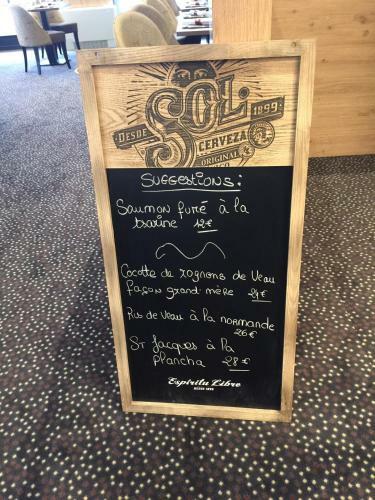 DESDE SOL 1899
CERVEZA
ORIGINAL
SUGGESTIONS:
Saumon fumé à la
tsarine 12€
Cocotte de rognons de Veau
façon grand-mère 24€
Ris de Veau à la normande
26€
St Jacques à la
plancha 28€
Espíritu Libre
DESDE 1899